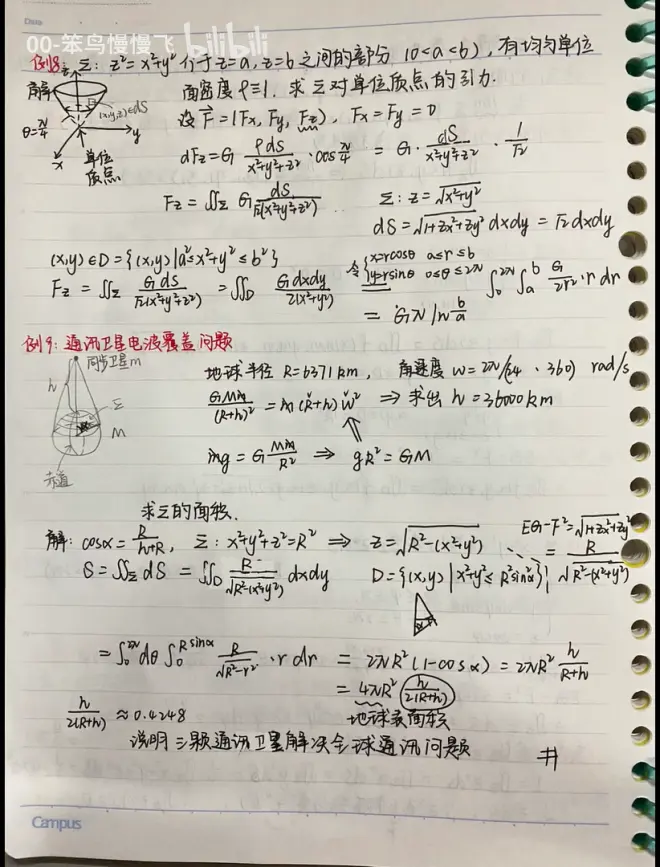 Date
00-笨鸟慢慢飞 bilibili
例8: Σ: z²=x²+y² 介于z=a, z=b 之间的部分 (0<a<b), 有均匀单位
面密度 ρ≡1. 求Σ对单位质点的引力.
解: z (x,y,z)∈dS θ=π/4 y x 单位质点
设 F⃗=(Fx, Fy, Fz), Fx=Fy=0
dFz=G ρdS/(x²+y²+z²) · cos π/4 = G · dS/(x²+y²+z²) · 1/√2
Fz=∬_Σ G dS/(√2(x²+y²+z²)) Σ: z=√(x²+y²)
dS=√(1+zx²+zy²) dxdy = √2 dxdy
(x,y)∈D={(x,y)|a²≤x²+y²≤b²}
Fz=∬_Σ GdS/(√2(x²+y²+z²)) =∬_D Gdxdy/(2(x²+y²)) 令{x=rcosθ a≤r≤b y=rsinθ 0≤θ≤2π = ∫₀^2π ∫_a^b G/(2r²)·r dr
= Gπ ln b/a
例9: 通讯卫星电波覆盖问题
同步卫星m h Σ M 赤道
地球半径 R=6371km, 角速度 w=2π/(24·360) rad/s
GMm/(R+h)² = m(R+h)w² ⇒ 求出 h=36000km
mg=G Mm/R² ⇒ gR²=GM
求Σ的面积.
解: cosα=R/(h+R), Σ: x²+y²+z²=R² ⇒ z=√(R²-(x²+y²)) EG-F²=√(1+zx²+zy²)
S=∬_Σ dS =∬_D R/√(R²-(x²+y²)) dxdy D={(x,y)|x²+y²≤R²sin²α} = R/√(R²-(x²+y²))
=∫₀^2π dθ ∫₀^Rsinα R/√(R²-r²) ·r dr = 2πR²(1-cosα)=2πR² h/(R+h)
= 4πR² (h/2(R+h))
地球表面积
h/2(R+h) ≈0.4248
说明三颗通讯卫星解决全球通讯问题 #
Campus